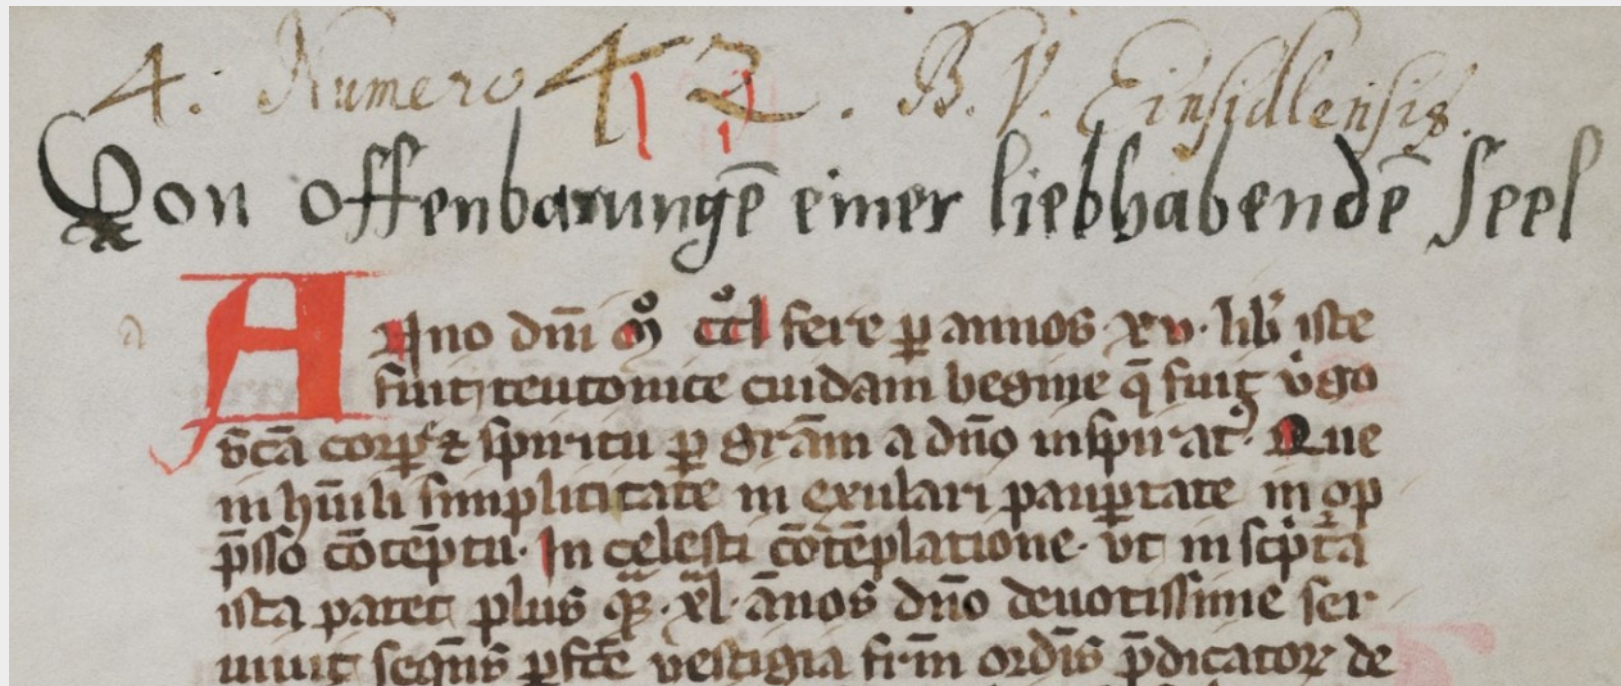 4. Numero 42. B. V. Einsidlensis.
Von offenbarungē einer liebhabendē seel
Anno dn̄i mͦ ccͦl fere ꝑ annos xv. lib̄ iste
fuit teutonice cuidam begine q̄ fuit v̓go
s̄cā corꝑe ⁊ spiritu ꝑ grām a dn̄o inspirat᷒. Que
in hūili simplicitate in exulari pauꝑtate in op
p̄sso cōtēptu. In celesti cōtēplatione. vt in sc̓pta
ista patet plus qᷓꝫ .xl. ānos dn̄o deuotissime ser
uiuit seqn̄s ꝑfcē vestigia fr̄m ordīs p̄dicatoꝝ de